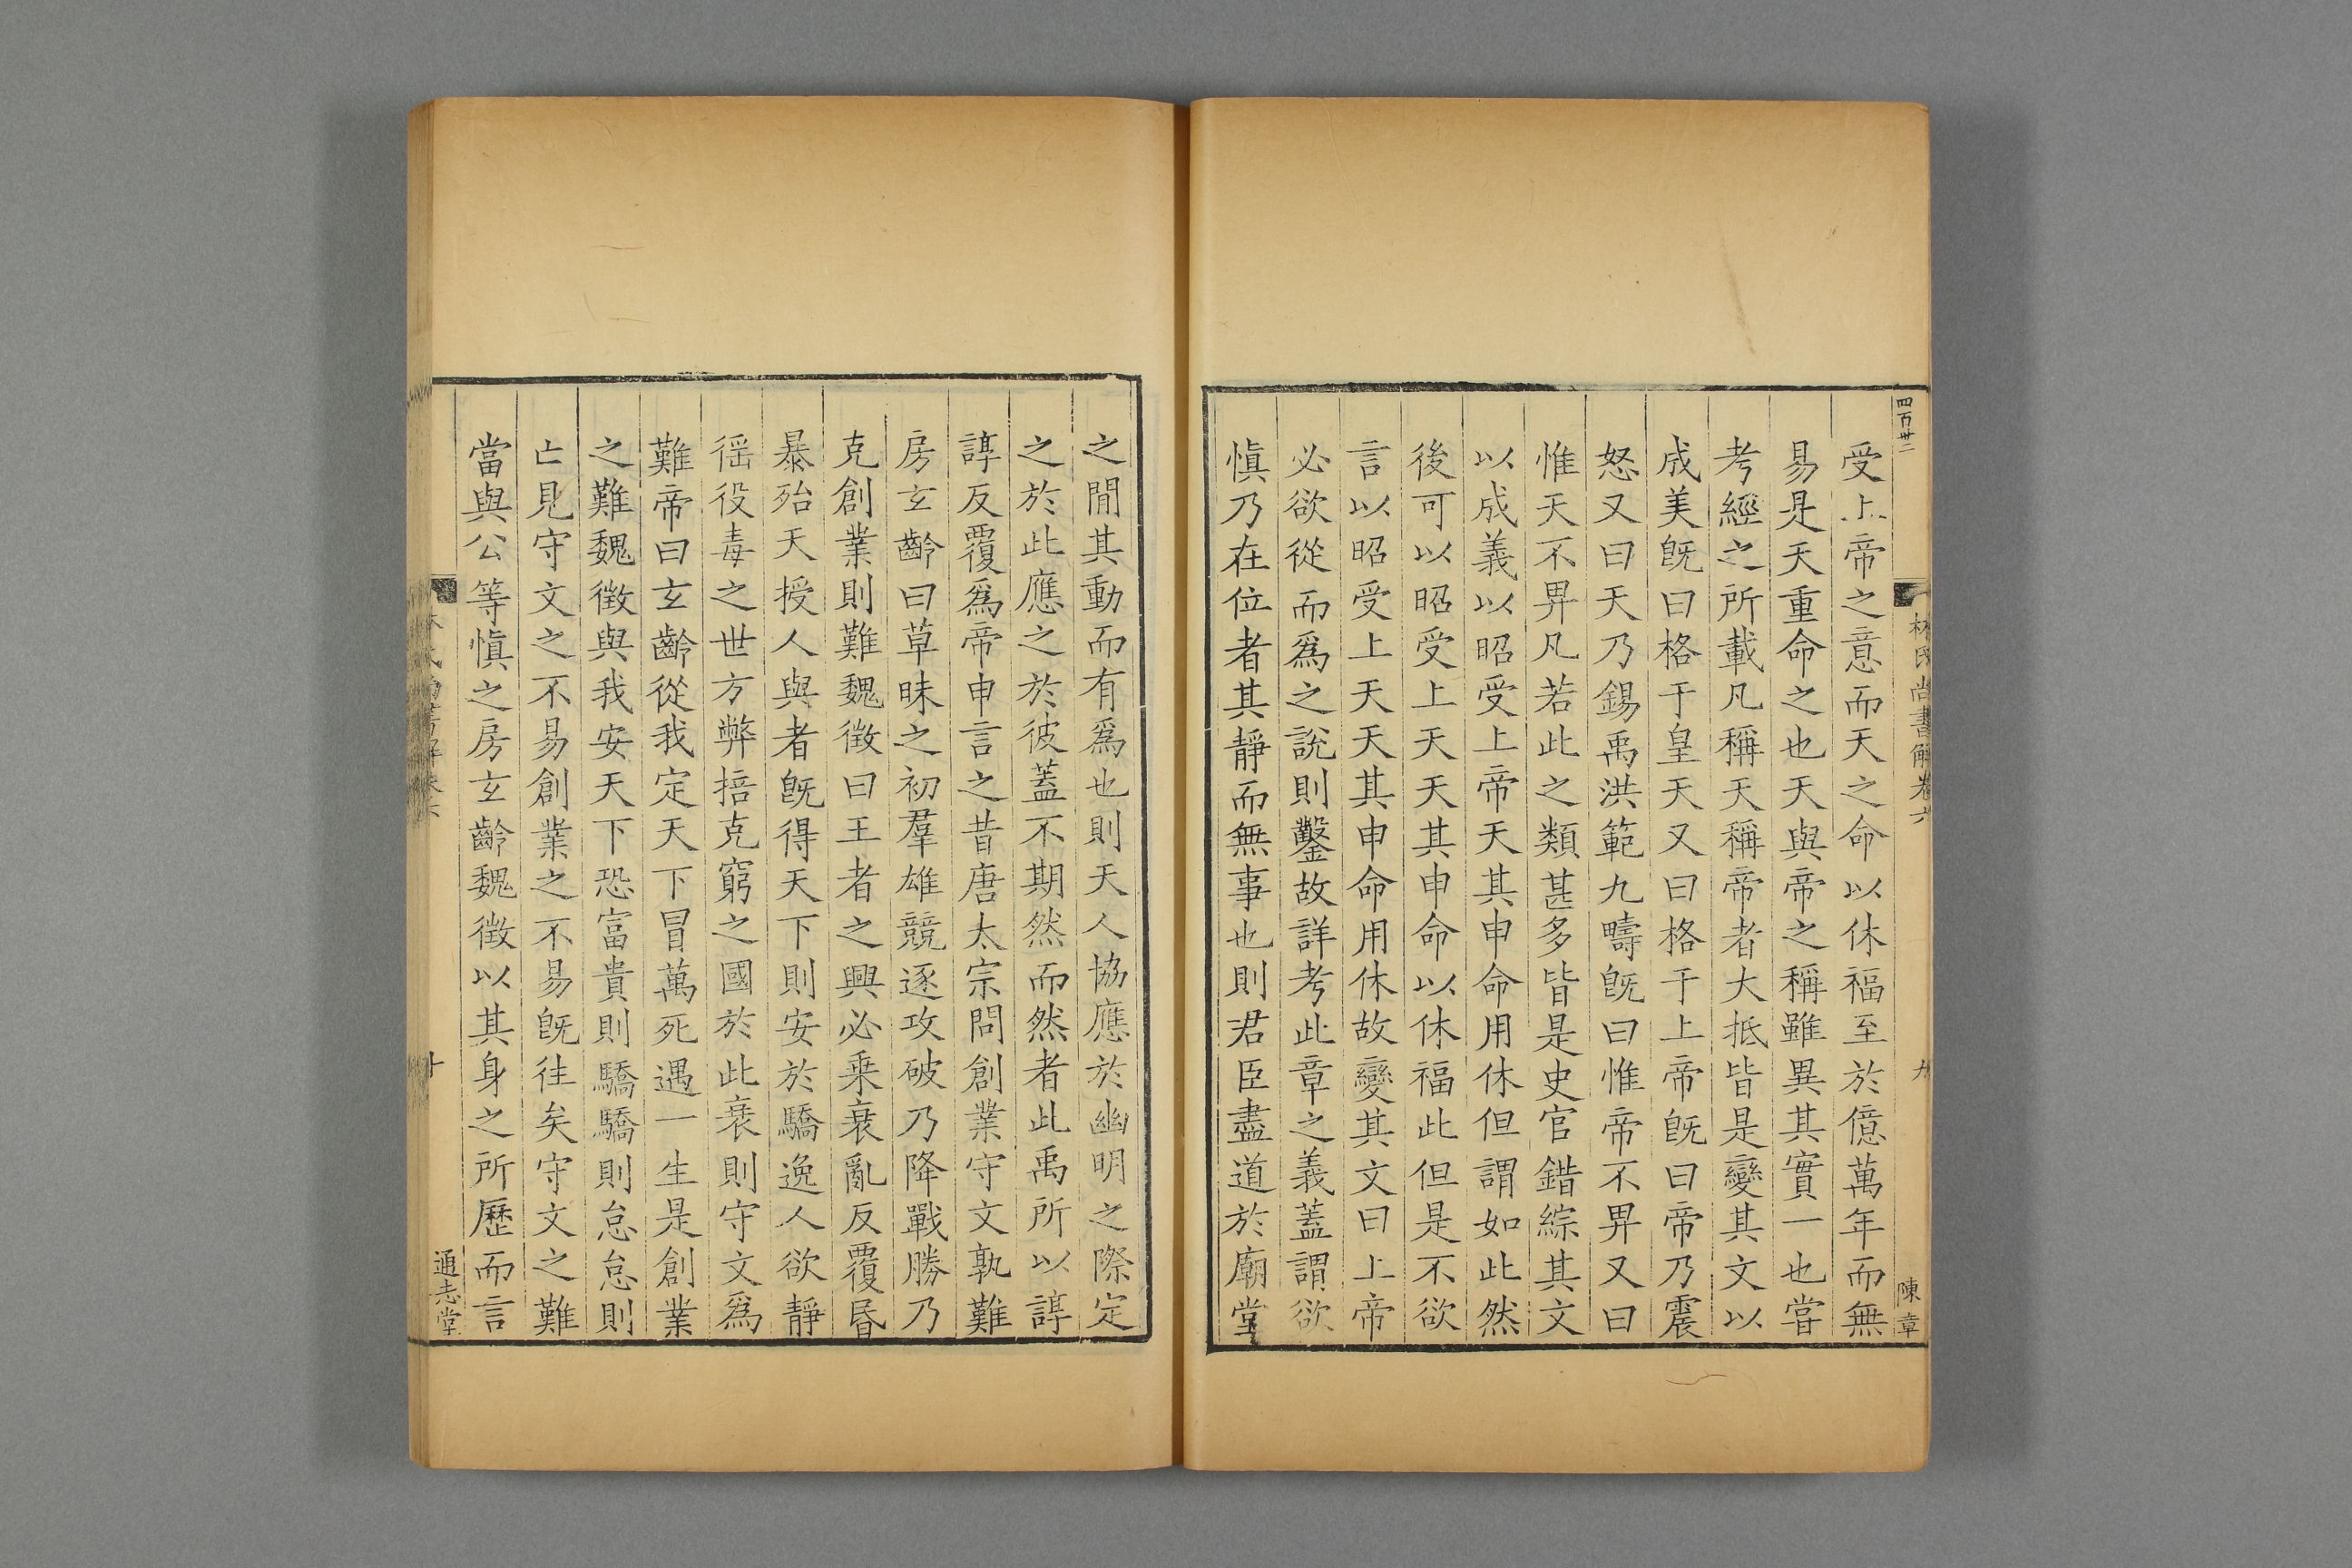 四百卅二
林氏尚書解卷六
九
陳章
受上帝之意而天之命以休福至於億萬年而無
易是天重命之也天與帝之稱雖異其實一也嘗
考經之所載凡稱天稱帝者大抵皆是變其文以
成美旣曰格于皇天又曰格于上帝旣曰帝乃震
怒又曰天乃錫禹洪範九疇旣曰惟帝不畀又曰
惟天不畀凡若此之類甚多皆是史官錯綜其文
以成義以昭受上帝天其申命用休但謂如此然
後可以昭受上天天其申命以休福此但是不欲
言以昭受上天天其申命用休故變其文曰上帝
必欲從而爲之說則鑿故詳考此章之義蓋謂欲
愼乃在位者其靜而無事也則君臣盡道於廟堂
之閒其動而有爲也則天人協應於幽明之際定
之於此應之於彼蓋不期然而然者此禹所以諄
諄反覆爲帝申言之昔唐太宗問創業守文孰難
房玄齡曰草昧之初羣雄競逐攻破乃降戰勝乃
克創業則難魏徵曰王者之興必乘衰亂反覆昬
暴殆天授人與者旣得天下則安於驕逸人欲靜
徭役毒之世方弊掊克窮之國於此衰則守文爲
難帝曰玄齡從我定天下冒萬死遇一生是創業
之難魏徵與我安天下恐富貴則驕驕則怠怠則
亡見守文之不易創業之不易旣往矣守文之難
當與公等愼之房玄齡魏徵以其身之所歷而言
十
通志堂